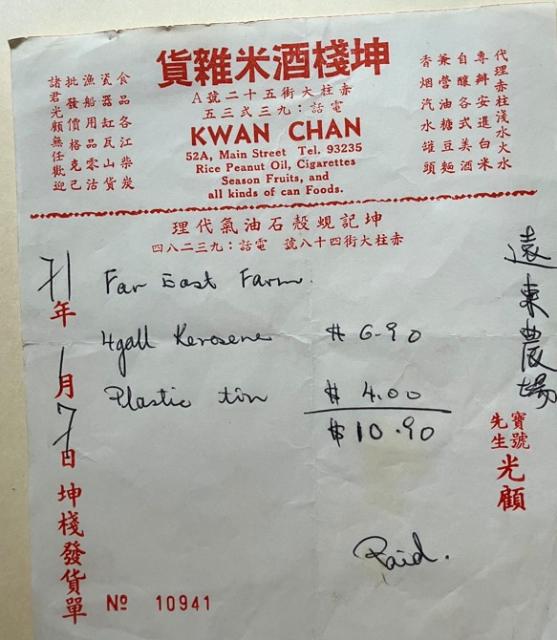 坤棧酒米雜貨
赤柱大街五十二號A
電話：九三弍三五
KWAN CHAN
52A, Main Street Tel. 93235
Rice Peanut Oil, Cigarettes
Season Fruits, and
all kinds of can Foods.
代理赤柱淺水火水
專辦安暹白米
自釀各式美酒
兼營油糖豆麵
香烟汽水罐頭
食品各江柴炭
瓷器缸瓦山貨
漁船用品零沽
批發價格克己
諸君光顧無任歡迎
坤記蜆殼石油氣代理
赤柱大街四十八號 電話：九三二八四
遠東農場
寶號
先生
光顧
Far East Farm.
4gall Kerosene $ 6.90
Plastic tin $ 4.00
$ 10.90
Paid.
71年1月7日
坤棧發貨單
Nº 10941